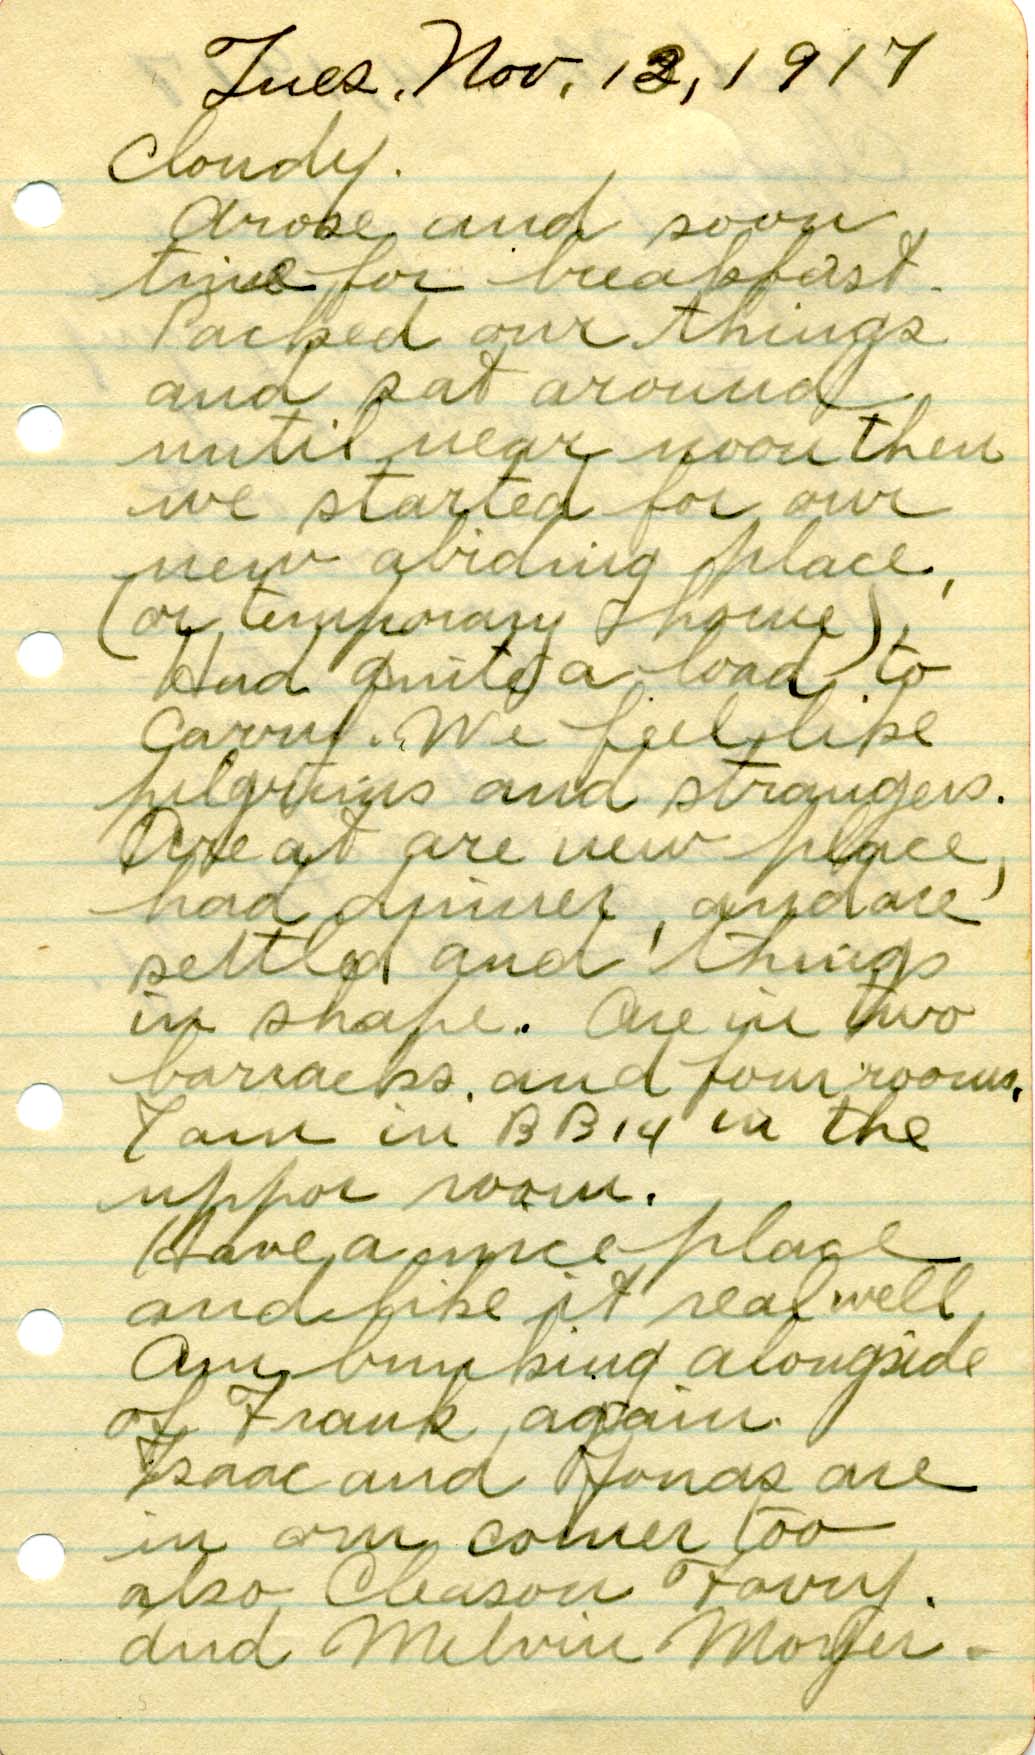 Tues. Nov. 13, 1917
Cloudy.
Arose and soon
time for breakfast.
Packed our things
and sat around
until near noon then
we started for our
new abiding place,
(or temporary home).
Had quite a load to
carry. We feel like
pilgrims and strangers.
Are at are new place,
had dinner, and are
settled and things
in shape. Are in two
barracks, and four rooms.
I am in BB14 in the
uppor room.
Have a nice place
and like it real well.
Am bunking alongside
of Frank again.
Isaac and Jonas are
in our corner too
also Cleason
and Melvin Moyer.